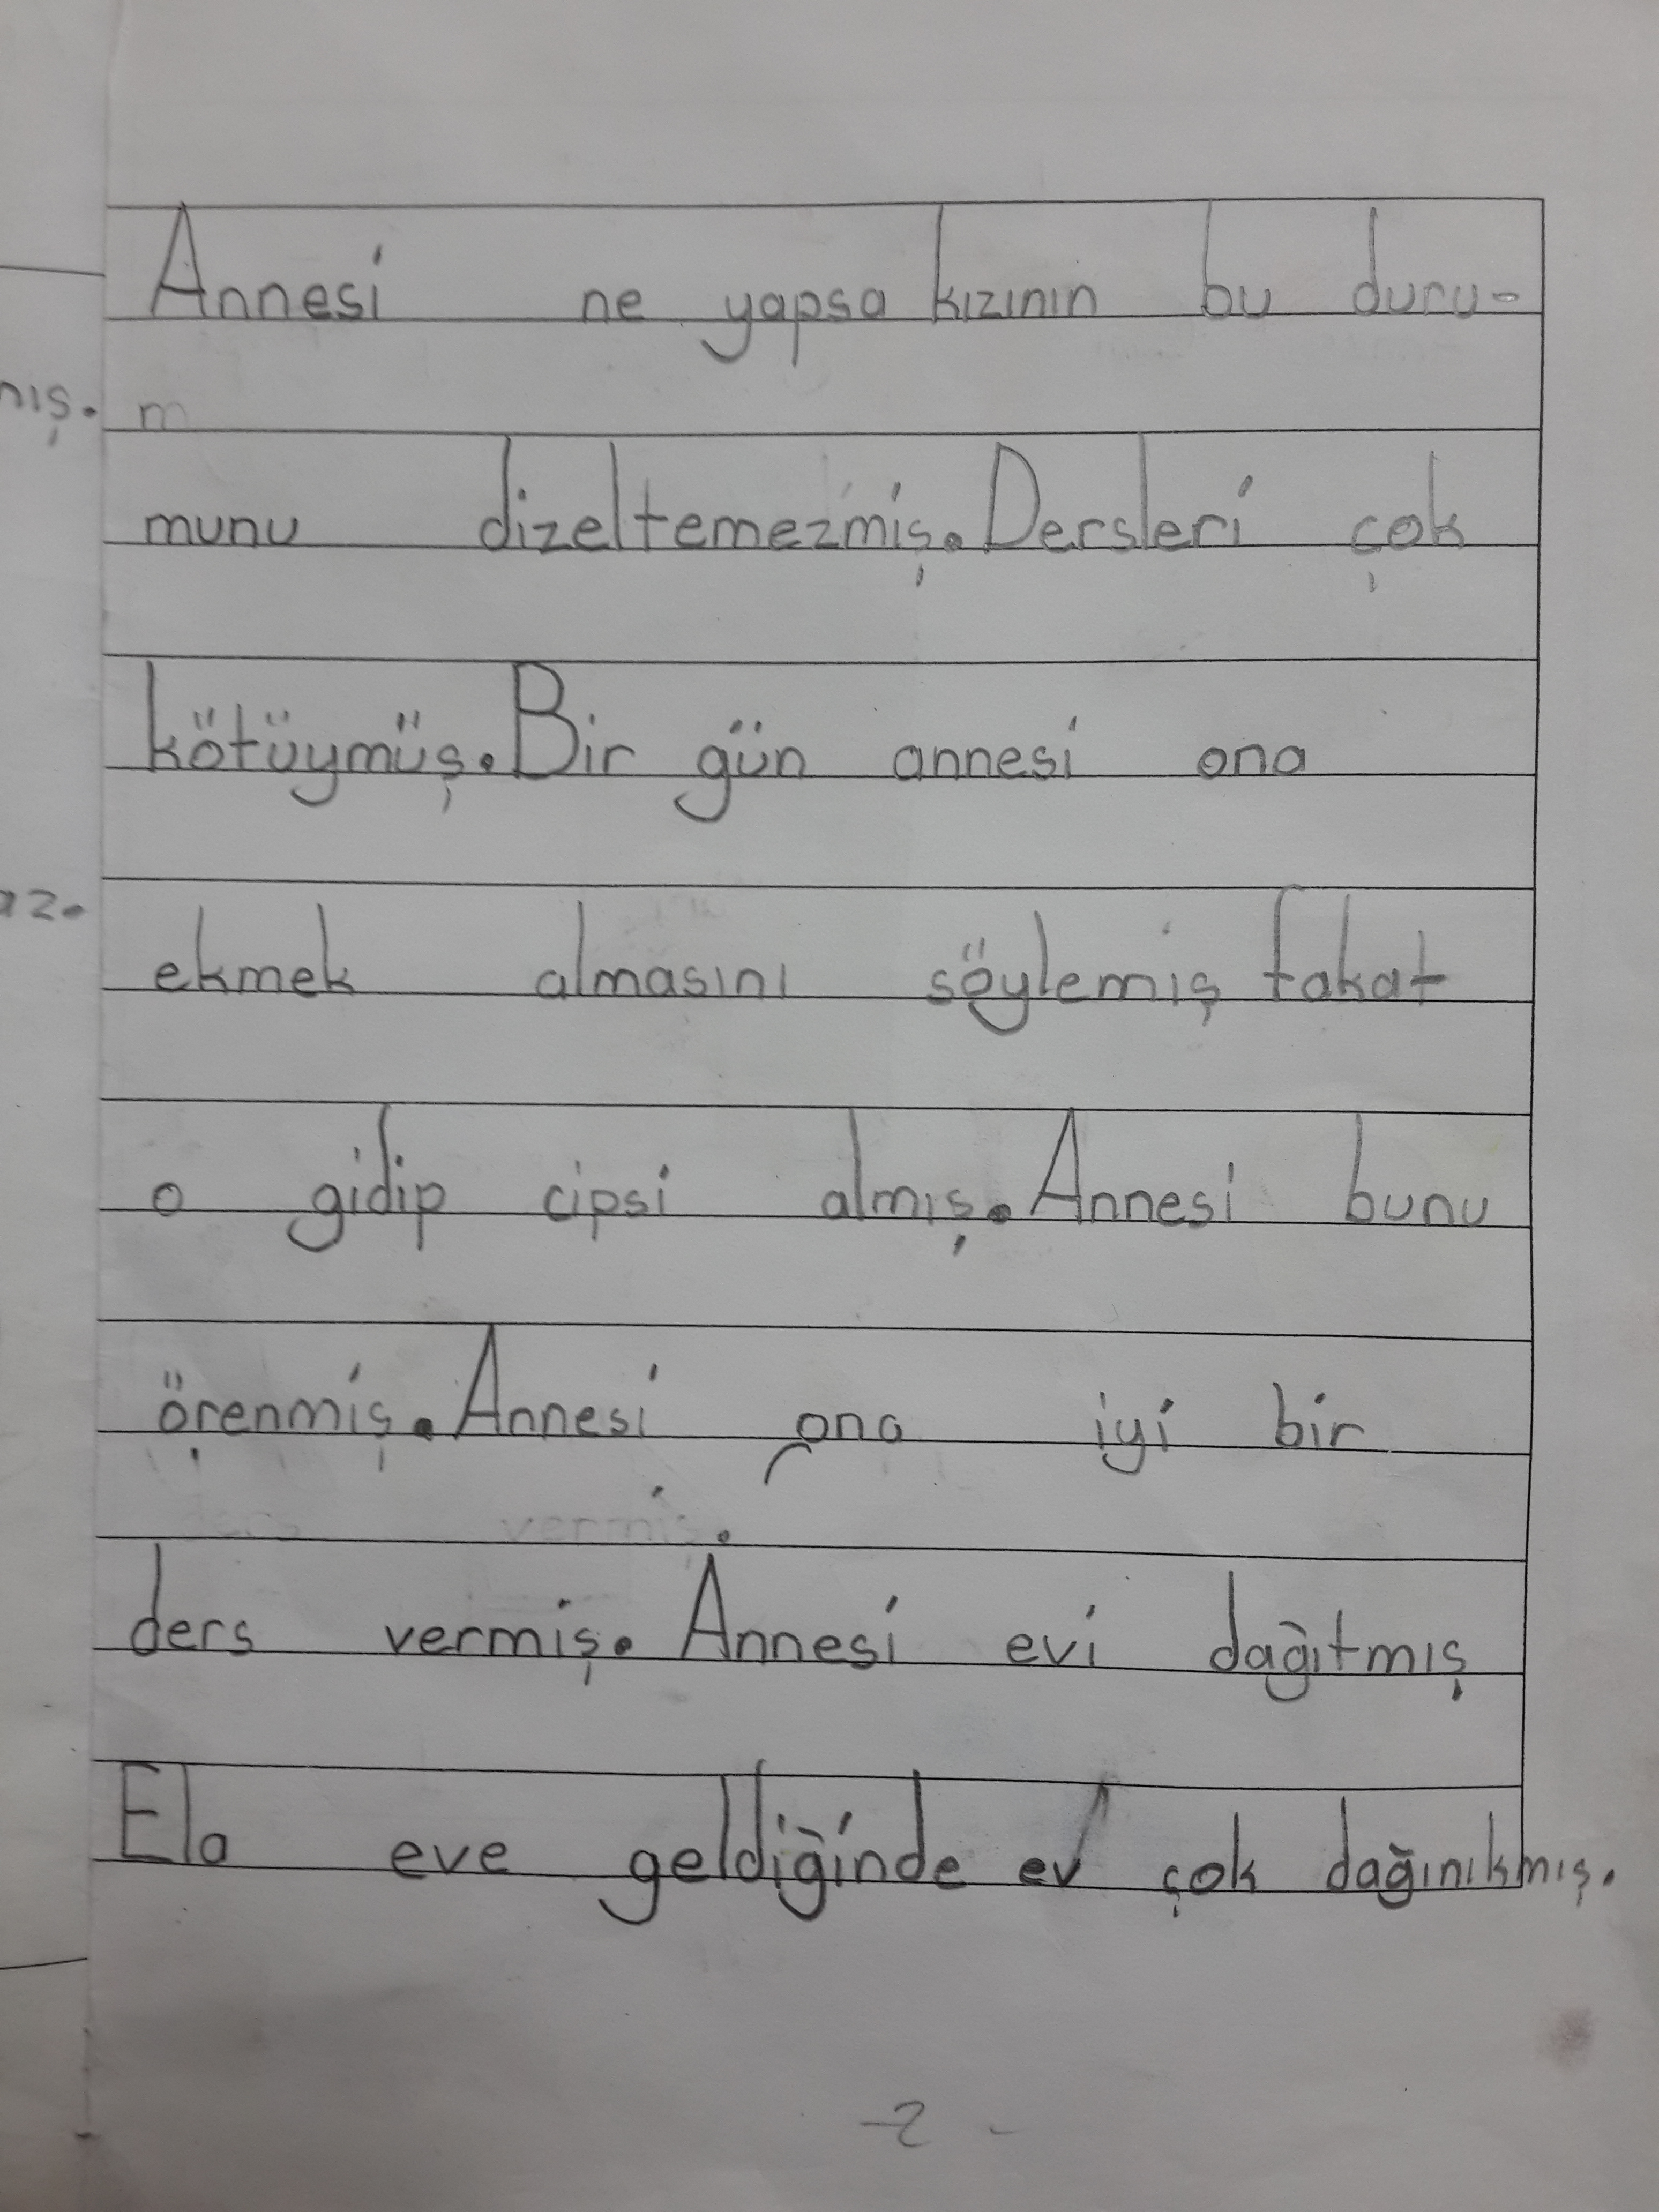 Annesi ne yapsa kızının bu duru-
nış. m
munu dizeltemezmiş. Dersleri çok
kötüymüş. Bir gün annesi ona
az.
ekmek almasını söylemiş fakat
o gidip cipsi almış. Annesi bunu
örenmiş. Annesi ona iyi bir
vermiş.
ders vermiş. Annesi evi dağıtmış
Ela eve geldiğinde ev çok dağınıkmış.
-2-